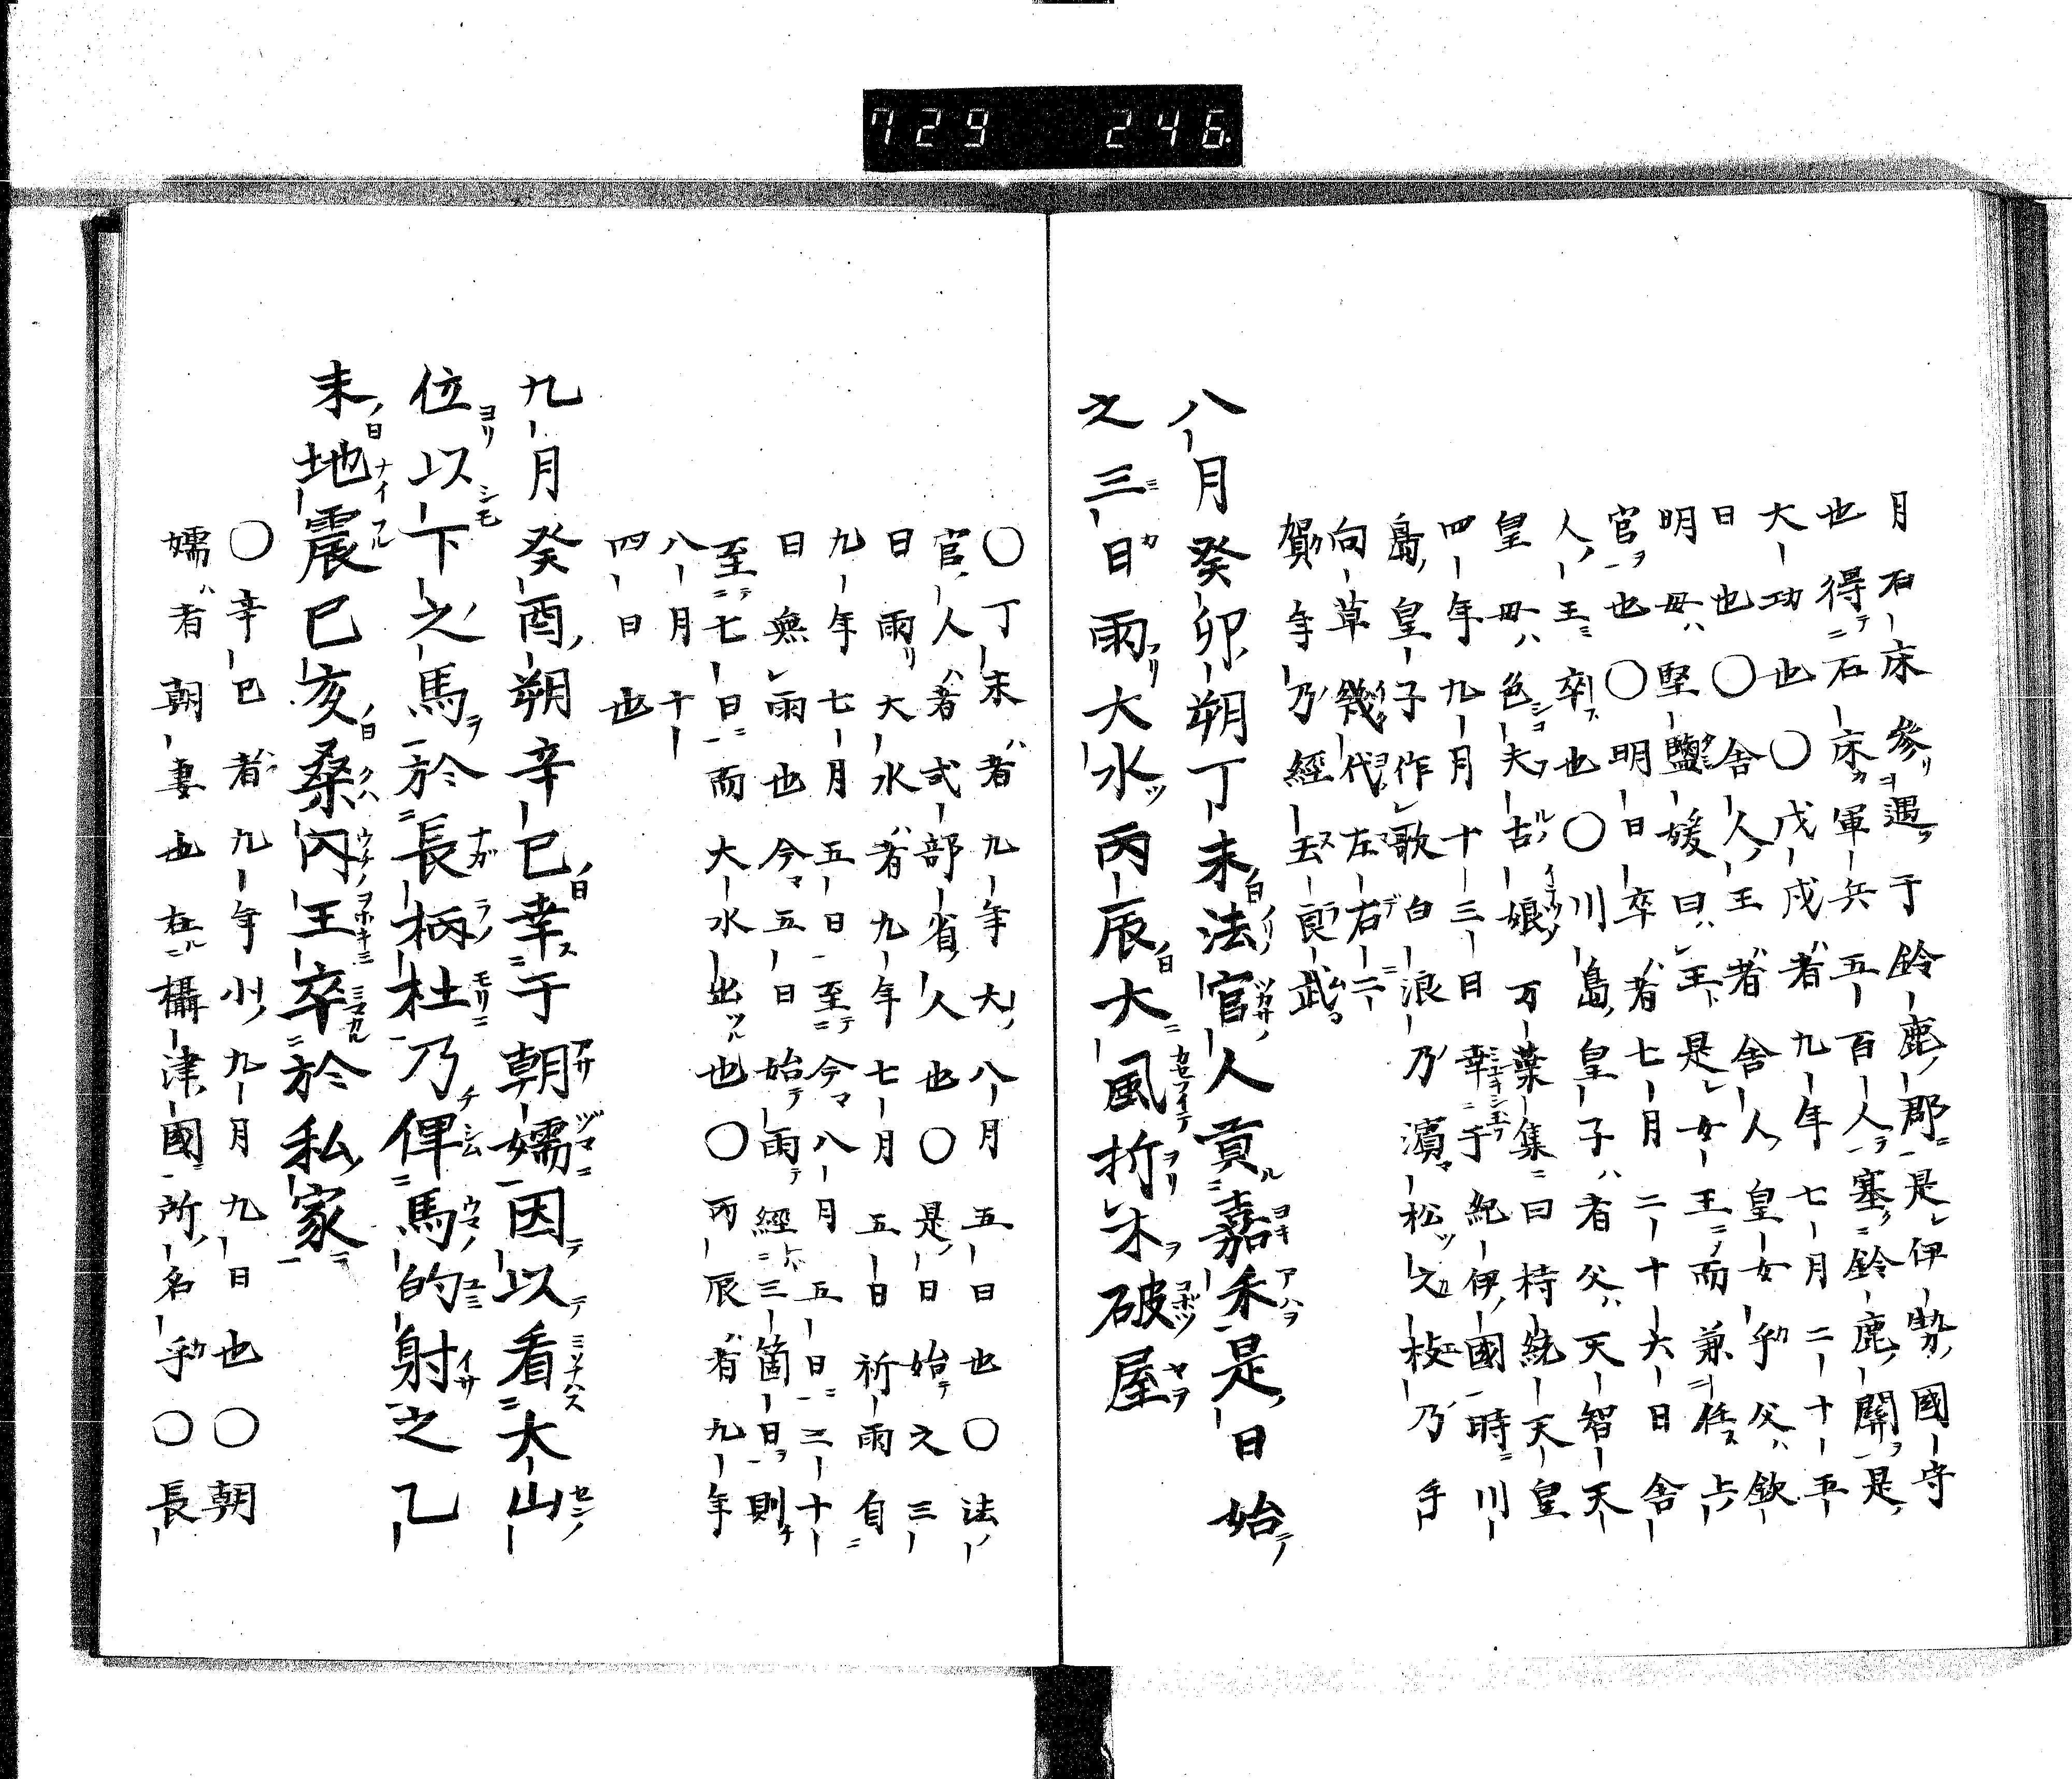 729 246
月石床参遇于鈴鹿郡是伊勢國守
也得石床軍兵五百人塞鈴鹿關是
大功也〇戊戌者九年七月二十五
日也〇舎人王者舎人皇女乎父欽
明母堅鹽媛曰王是女王而兼任上
官也〇明日卒者七月二十六日舎
人王卒也〇川島皇子者父天智天
皇母色夫古娘万葉集曰持統天皇
四年九月十三日幸于紀伊國時川
島皇子作歌白浪乃濱松之枝乃手
向草幾代左右二
賀年乃經去良武
八月癸卯朔丁未法官人貢嘉禾是日始
之三日雨大水丙辰大風折木破屋
〇丁未者九年大八月五日也〇法
官人者式部省人也〇是日始之三
日雨大水者九年七月五日祈雨自
九年七月五日至今八月五日三十
日無雨也今五日始雨經三箇日則
至七日而大水出也〇丙辰者九年
八月十
四日也
九月癸酉朔辛巳幸于朝嬬因以看大山
位以下之馬於長柄杜乃俾馬的射之乙
未地震己亥桑内王卒於私家
〇辛巳者九年小九月九日也〇朝
嬬者朝妻也在攝津國所名乎〇長